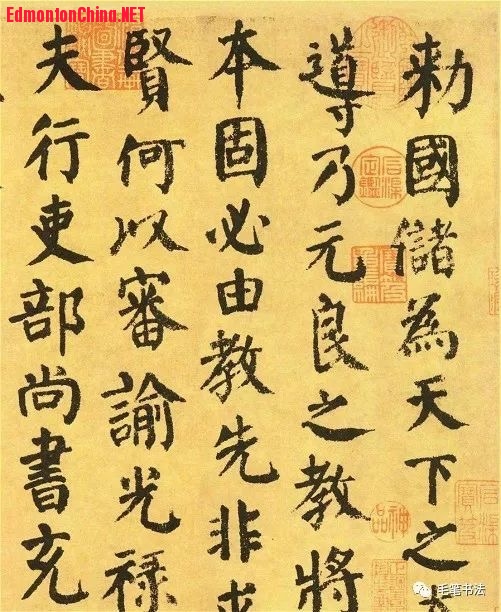 EdmontonChina.NET
勅國儲為天下之
導乃元良之教將
本固必由教先非求
賢何以審諭光祿
夫行吏部尚書充
神品
毛笔书法